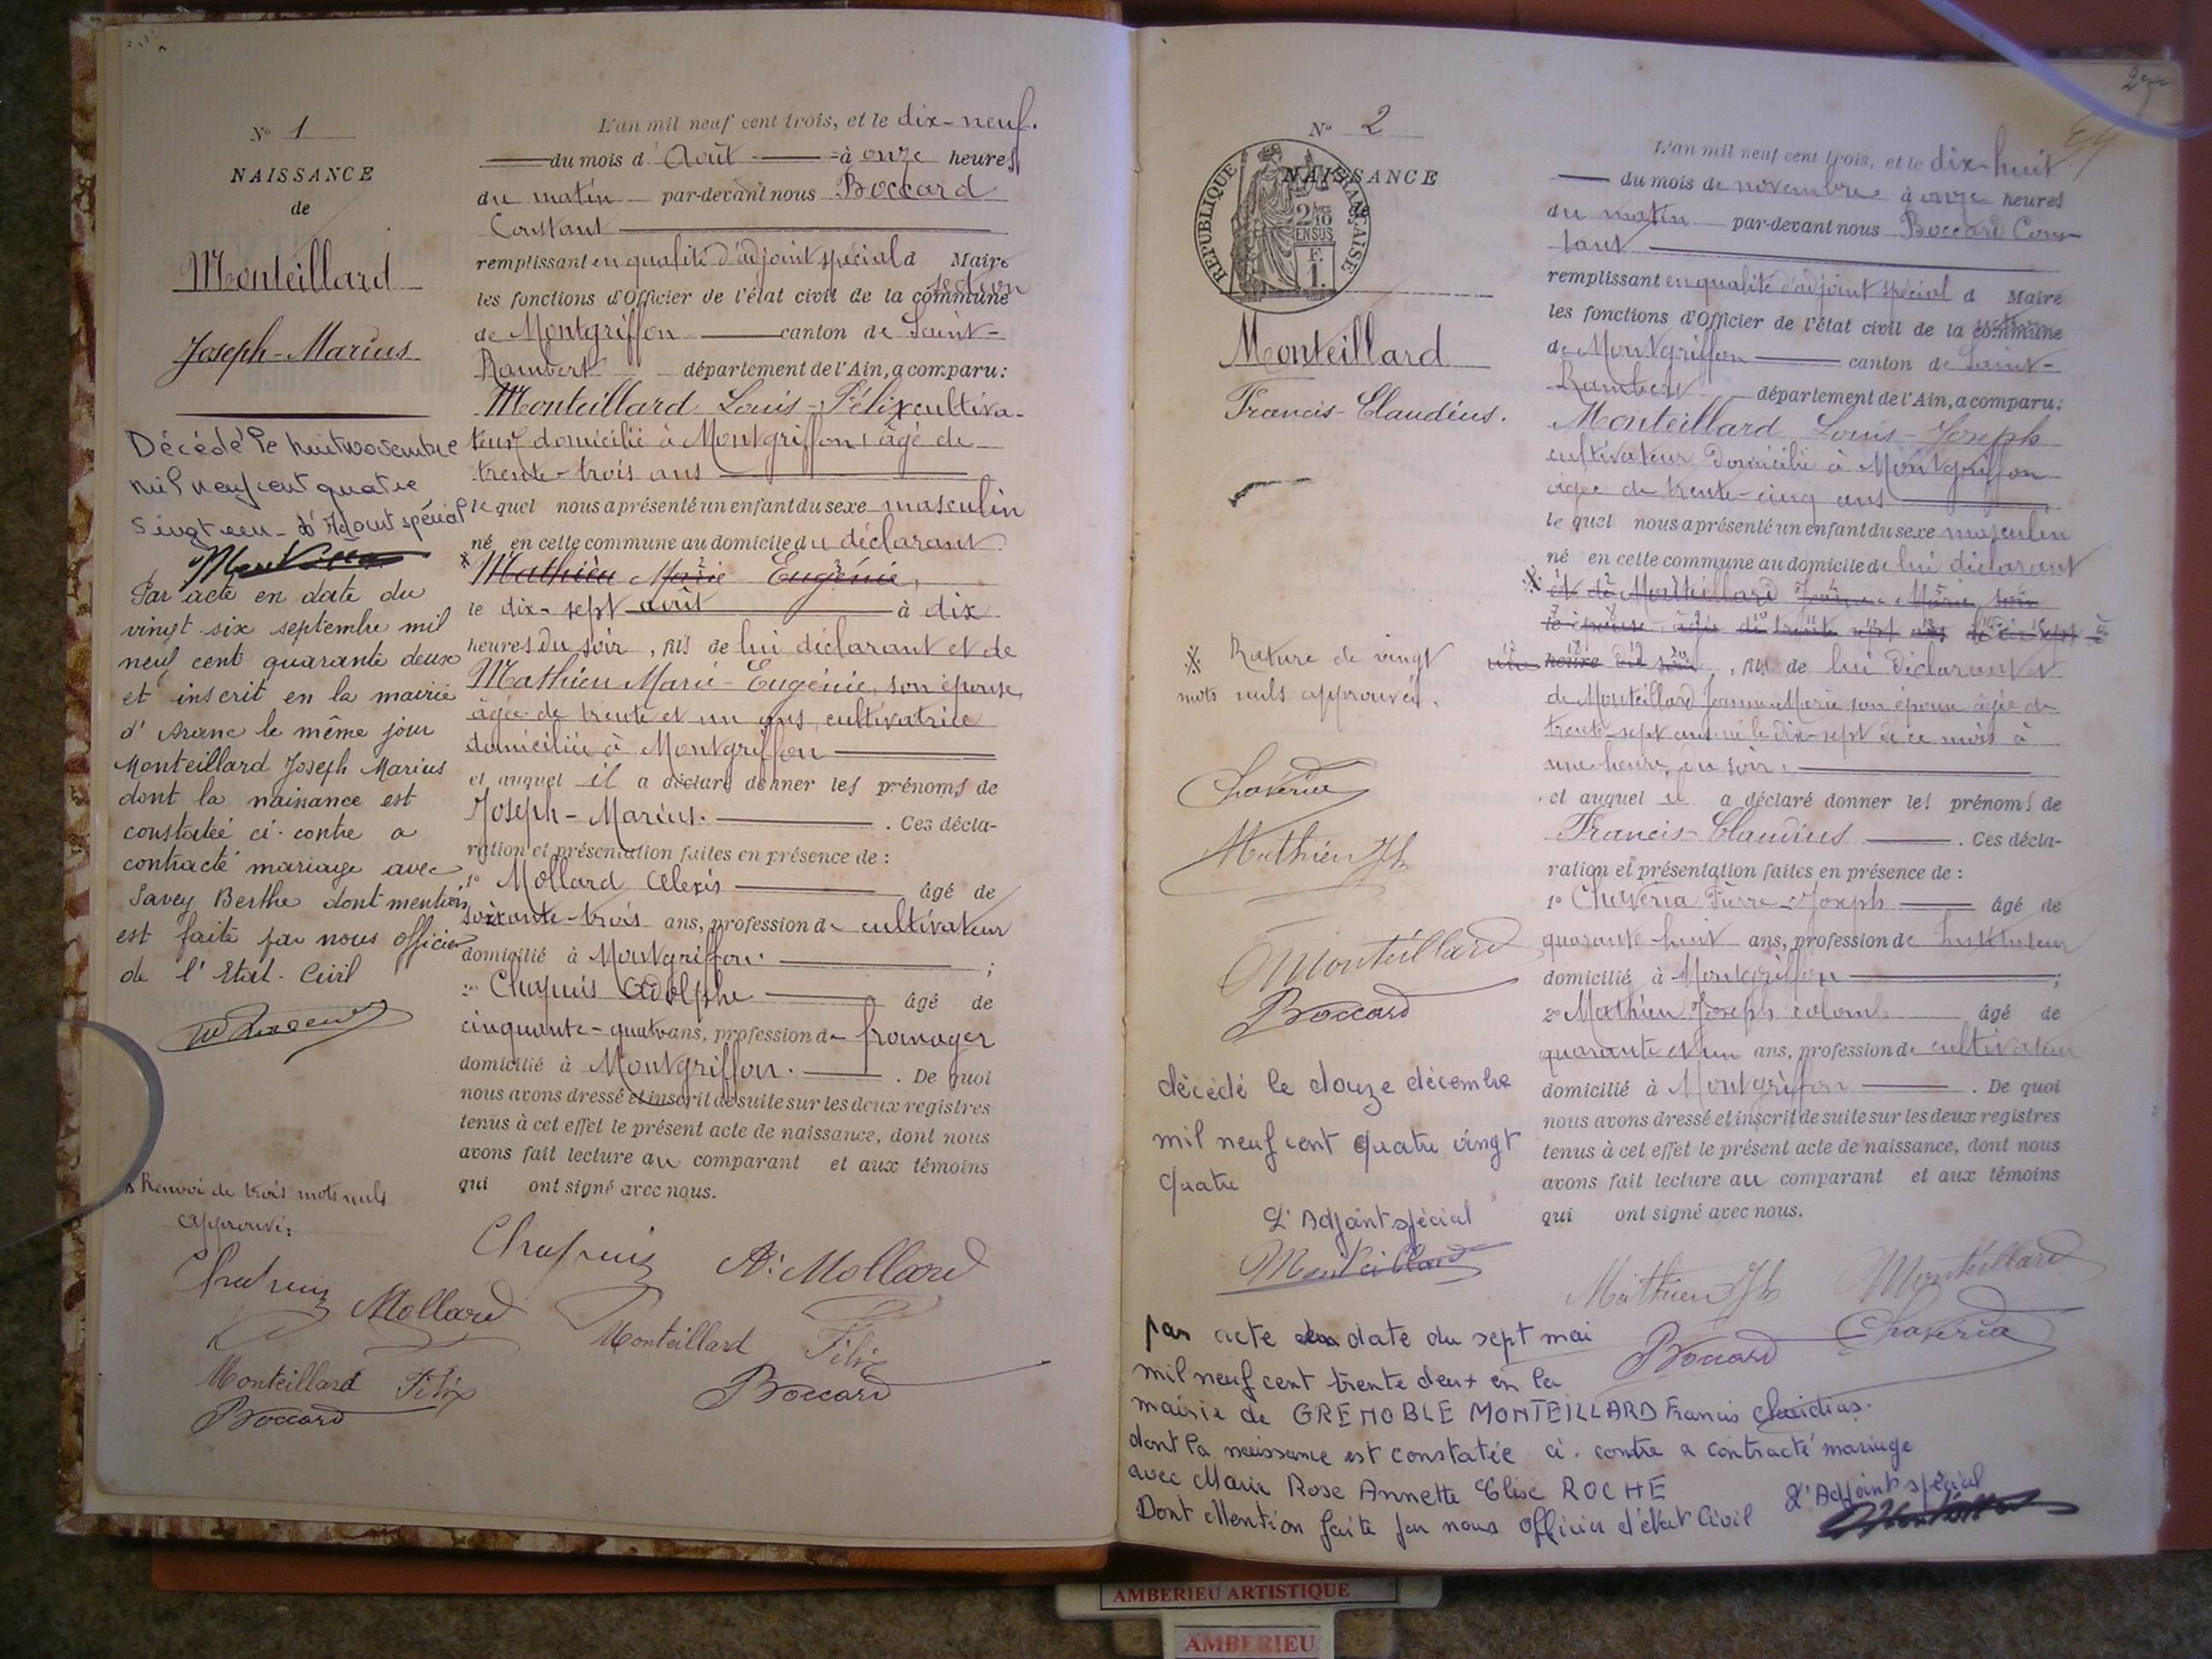 N° 1
NAISSANCE
de
Monteillard
Joseph-Marius
Décédé le huit novembre
mil neuf cent quatre
vingt un - L'Adjoint spécial
Par acte en date du
vingt-six septembre mil
neuf cent quarante deux
et inscrit en la mairie
d'Aranc le même jour
Monteillard Joseph Marius
dont la naissance est
constatée ci-contre a
contracté mariage avec
Savey Berthe dont mention
est faite par nous officier
de l'Etat-Civil
x Renvoi de trois mots nuls
approuvé.
Chapuis
Mollard
Monteillard Félix
Boccard
L'an mil neuf cent trois, et le dix-neuf
du mois d'Août à onze heures
du matin par-devant nous Boccard
Constant
remplissant en qualité d'adjoint spécial d Maire
section
les fonctions d'Officier de l'état civil de la commune
de Montgriffon canton de Saint-
Rambert département de l'Ain, a comparu:
Monteillard Louis-Félix cultiva-
teur domicilié à Montgriffon, âgé de
trente-trois ans
lequel nous a présenté un enfant du sexe masculin
né en cette commune au domicile du déclarant
x Mathieu Marie Eugénie,
le dix-sept août à dix
heures du soir, fils de lui déclarant et de
Mathieu Marie-Eugénie, son épouse,
âgée de trente et un ans, cultivatrice
domiciliée à Montgriffon
et auquel il a déclaré donner les prénoms de
Joseph-Marius. Ces décla-
ration et présentation faites en présence de:
1° Mollard Alexis âgé de
soixante-trois ans, profession de cultivateur
domicilié à Montgriffon;
2° Chapuis Adolphe âgé de
cinquante-quatre ans, profession de fromager
domicilié à Montgriffon. De quoi
nous avons dressé et inscrit de suite sur les deux registres
tenus à cet effet le présent acte de naissance, dont nous
avons fait lecture au comparant et aux témoins
qui ont signé avec nous.
Chapuis A. Mollard
Monteillard Félix
Boccard
N° 2
NAISSANCE
de
RÉPUBLIQUE FRANÇAISE
2/10
EN SUS
F.
1.
Monteillard
Francis-Claudius.
x Rature de vingt
mots nuls approuvée.
Chavéria
Mathieu Jh
Monteillard
Boccard
décédé le douze décembre
mil neuf cent quatre vingt
quatre
L'Adjoint spécial
Monteillard
L'an mil neuf cent trois, et le dix-huit
du mois de novembre à onze heures
du matin par-devant nous Boccard Cons-
tant
remplissant en qualité d'adjoint spécial d Maire
les fonctions d'Officier de l'état civil de la commune
de Montgriffon canton de Saint-
Rambert département de l'Ain, a comparu:
Monteillard Louis-Joseph
cultivateur domicilié à Montgriffon
âgé de trente-cinq ans
lequel nous a présenté un enfant du sexe masculin
né en cette commune au domicile de lui déclarant
x et de Monteillard Jeanne Marie son
heure du soir, fils de lui déclarant et
de Monteillard Jeanne Marie son épouse âgée de
trente-sept ans né le dix-sept de ce mois à
une heure du soir.
et auquel il a déclaré donner les prénoms de
Francis-Claudius. Ces décla-
ration et présentation faites en présence de:
1° Chavéria Pierre-Joseph âgé de
quarante-huit ans, profession de Instituteur
domicilié à Montgriffon;
2° Mathieu Joseph âgé de
quarante et un ans, profession de cultivateur
domicilié à Montgriffon. De quoi
nous avons dressé et inscrit de suite sur les deux registres
tenus à cet effet le présent acte de naissance, dont nous
avons fait lecture au comparant et aux témoins
qui ont signé avec nous.
Mathieu Jh Monteillard
Boccard Chavéria
par acte en date du sept mai
mil neuf cent trente deux en la
mairie de GRENOBLE MONTEILLARD Francis Claudius.
dont la naissance est constatée ci-contre a contracté mariage
avec Marie Rose Annette Elise ROCHE
Dont Mention faite par nous officier d'état Civil L'Adjoint spécial
AMBERIEU ARTISTIQUE
AMBERIEU